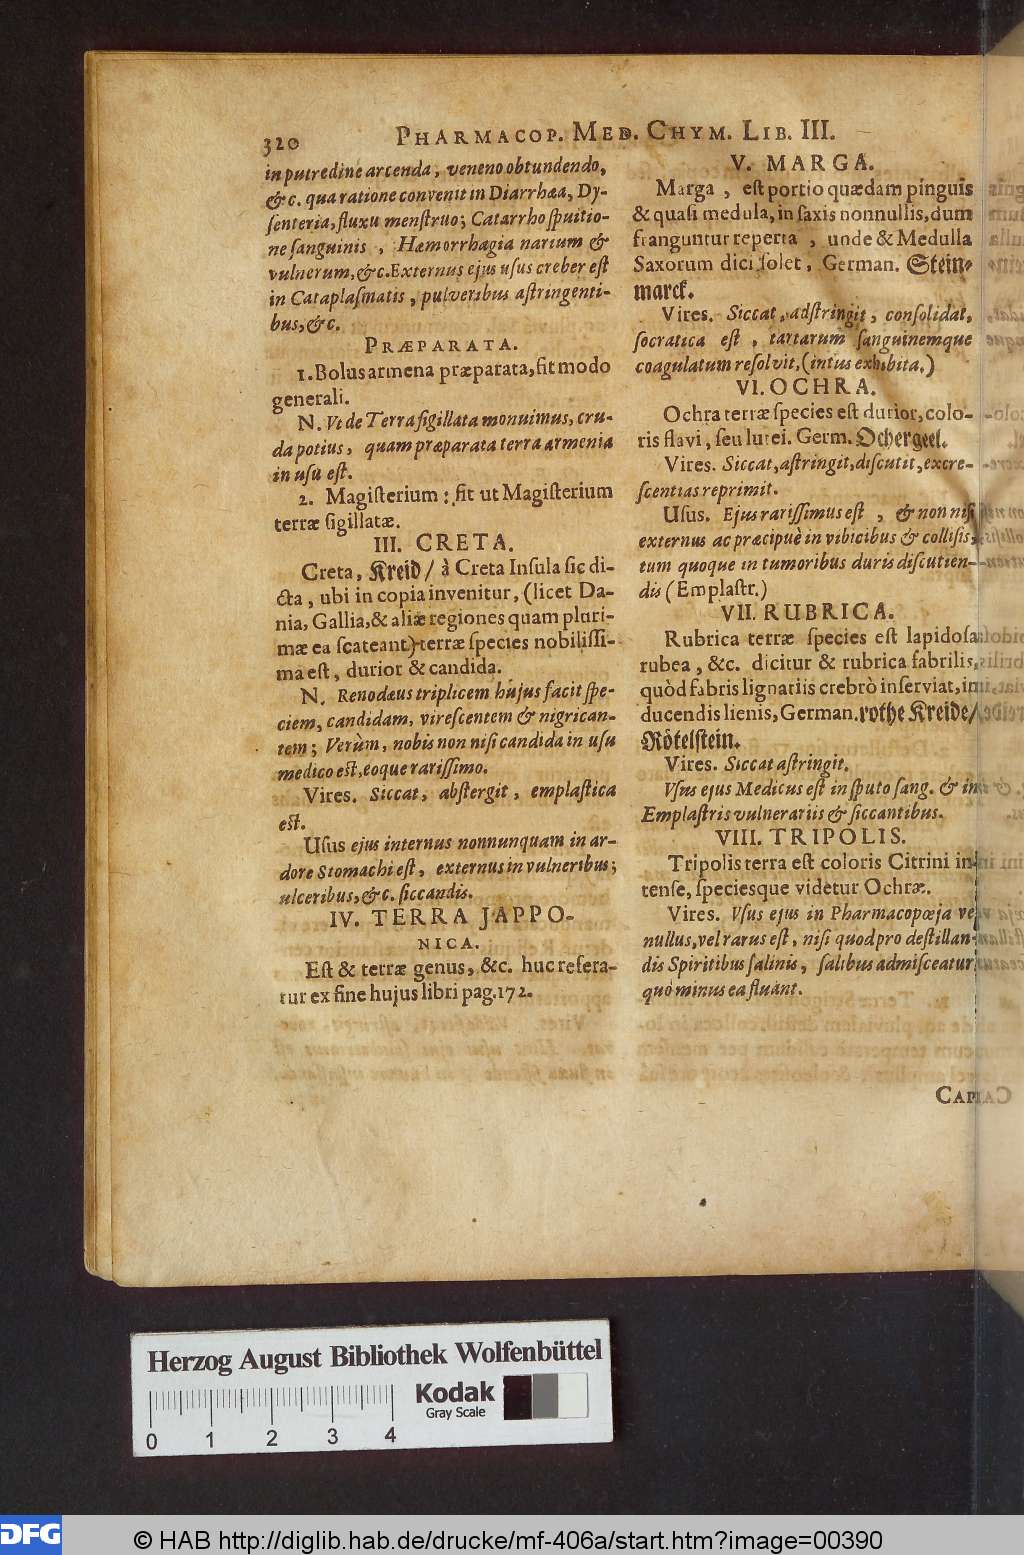 320 PHARMACOP. MED. CHYM. LIB. III.
in putredine arcenda, veneno obtundendo,
&c. qua ratione convenit in Diarrhœa, Dy-
ſenteria, fluxu menſtruo; Catarrho ſputio-
ne ſanguinis, Hæmorrhagia narium &
vulnerum, &c. Externus ejus uſus creber eſt
in Cataplaſmatis, pulveribus aſtringenti-
bus, &c.
PRÆPARATA.
1. Bolus armena præparata, fit modo
generali.
N. Ut de Terra ſigillata monuimus, cru-
da potius, quam præparata terra armenia
in uſu eſt.
2. Magiſterium: fit ut Magiſterium
terræ ſigillatæ.
III. CRETA.
Creta, Kreid/ à Creta Inſula ſic di-
cta, ubi in copia invenitur, (licet Da-
nia, Gallia, & aliæ regiones quam pluri-
mæ ea ſcateant) terræ ſpecies nobiliſſi-
ma eſt, durior & candida.
N. Renodæus triplicem hujus facit ſpe-
ciem, candidam, vireſcentem & nigrican-
tem; Verùm, nobis non niſi candida in uſu
medico eſt, eoque rariſſimo.
Vires. Siccat, abſtergit, emplaſtica
eſt.
Uſus ejus internus nonnunquam in ar-
dore Stomachi eſt, externus in vulneribus;
ulceribus, &c. ſiccandis.
IV. TERRA JAPPO-
NICA.
Eſt & terræ genus, &c. huc refera-
tur ex fine hujus libri pag. 172.
V. MARGA.
Marga, eſt portio quædam pinguis
& quaſi medula, in ſaxis nonnullis, dum
franguntur reperta, unde & Medulla
Saxorum dici ſolet, German. Stein-
marck.
Vires. Siccat, adſtringit, conſolidat,
ſocratica eſt, tartarum ſanguinemque
coagulatum reſolvit, (intus exhibita.)
VI. OCHRA.
Ochra terræ ſpecies eſt durior, colo-
ris flavi, ſeu lutei. Germ. Ochergeel.
Vires. Siccat, aſtringit, diſcutit, excre-
ſcentias reprimit.
Uſus. Ejus rariſſimus eſt, & non niſi
externus ac præcipuè in vibicibus & colliſis,
tum quoque in tumoribus duris diſcutien-
dis (Emplaſtr.)
VII. RUBRICA.
Rubrica terræ ſpecies eſt lapidoſa
rubea, &c. dicitur & rubrica fabrilis,
quòd fabris lignariis crebrò inſerviat, in
ducendis lienis, German. rothe Kreide/
Rötelſtein.
Vires. Siccat aſtringit.
Uſus ejus Medicus eſt in ſputo ſang. & in
Emplaſtris vulnerariis & ſiccantibus.
VIII. TRIPOLIS.
Tripolis terra eſt coloris Citrini in-
tenſe, ſpeciesque videtur Ochræ.
Vires. Uſus ejus in Pharmacopœja vel
nullus, vel rarus eſt, niſi quod pro deſtillan-
dis Spiritibus ſalinis, ſalibus admiſceatur
quò minus ea fluant.
CAP
Herzog August Bibliothek Wolfenbüttel
Kodak
Gray Scale
0 1 2 3 4
DFG
© HAB http://diglib.hab.de/drucke/mf-406a/start.htm?image=00390